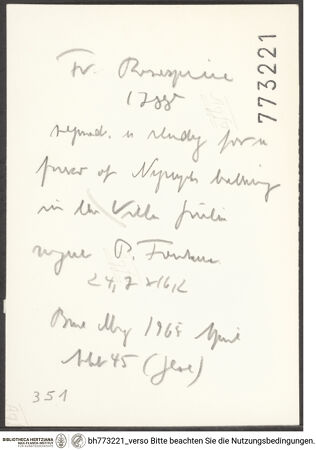 Fr. Rosaspina
reprod. a study for a
fresco of Nymphs bathing
in the Villa Giulia
P. Fontana
24,7 x 16,2
Burl Mag 1965 April
(
351
773221
BIBLIOTHECA HERTZIANA
MAX-PLANCK-INSTITUT
FÜR KUNSTGESCHICHTE
bh773221_verso Bitte beachten Sie die Nutzungsbedingungen.